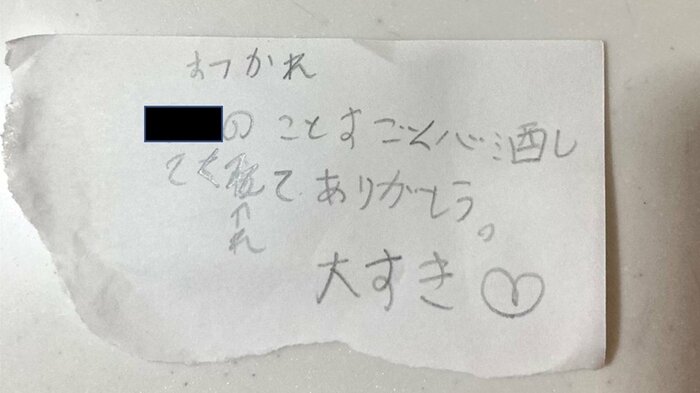 おつかれ
のことすごく心酒し
てく飯てありがとう。
↑
れ
大すき♡